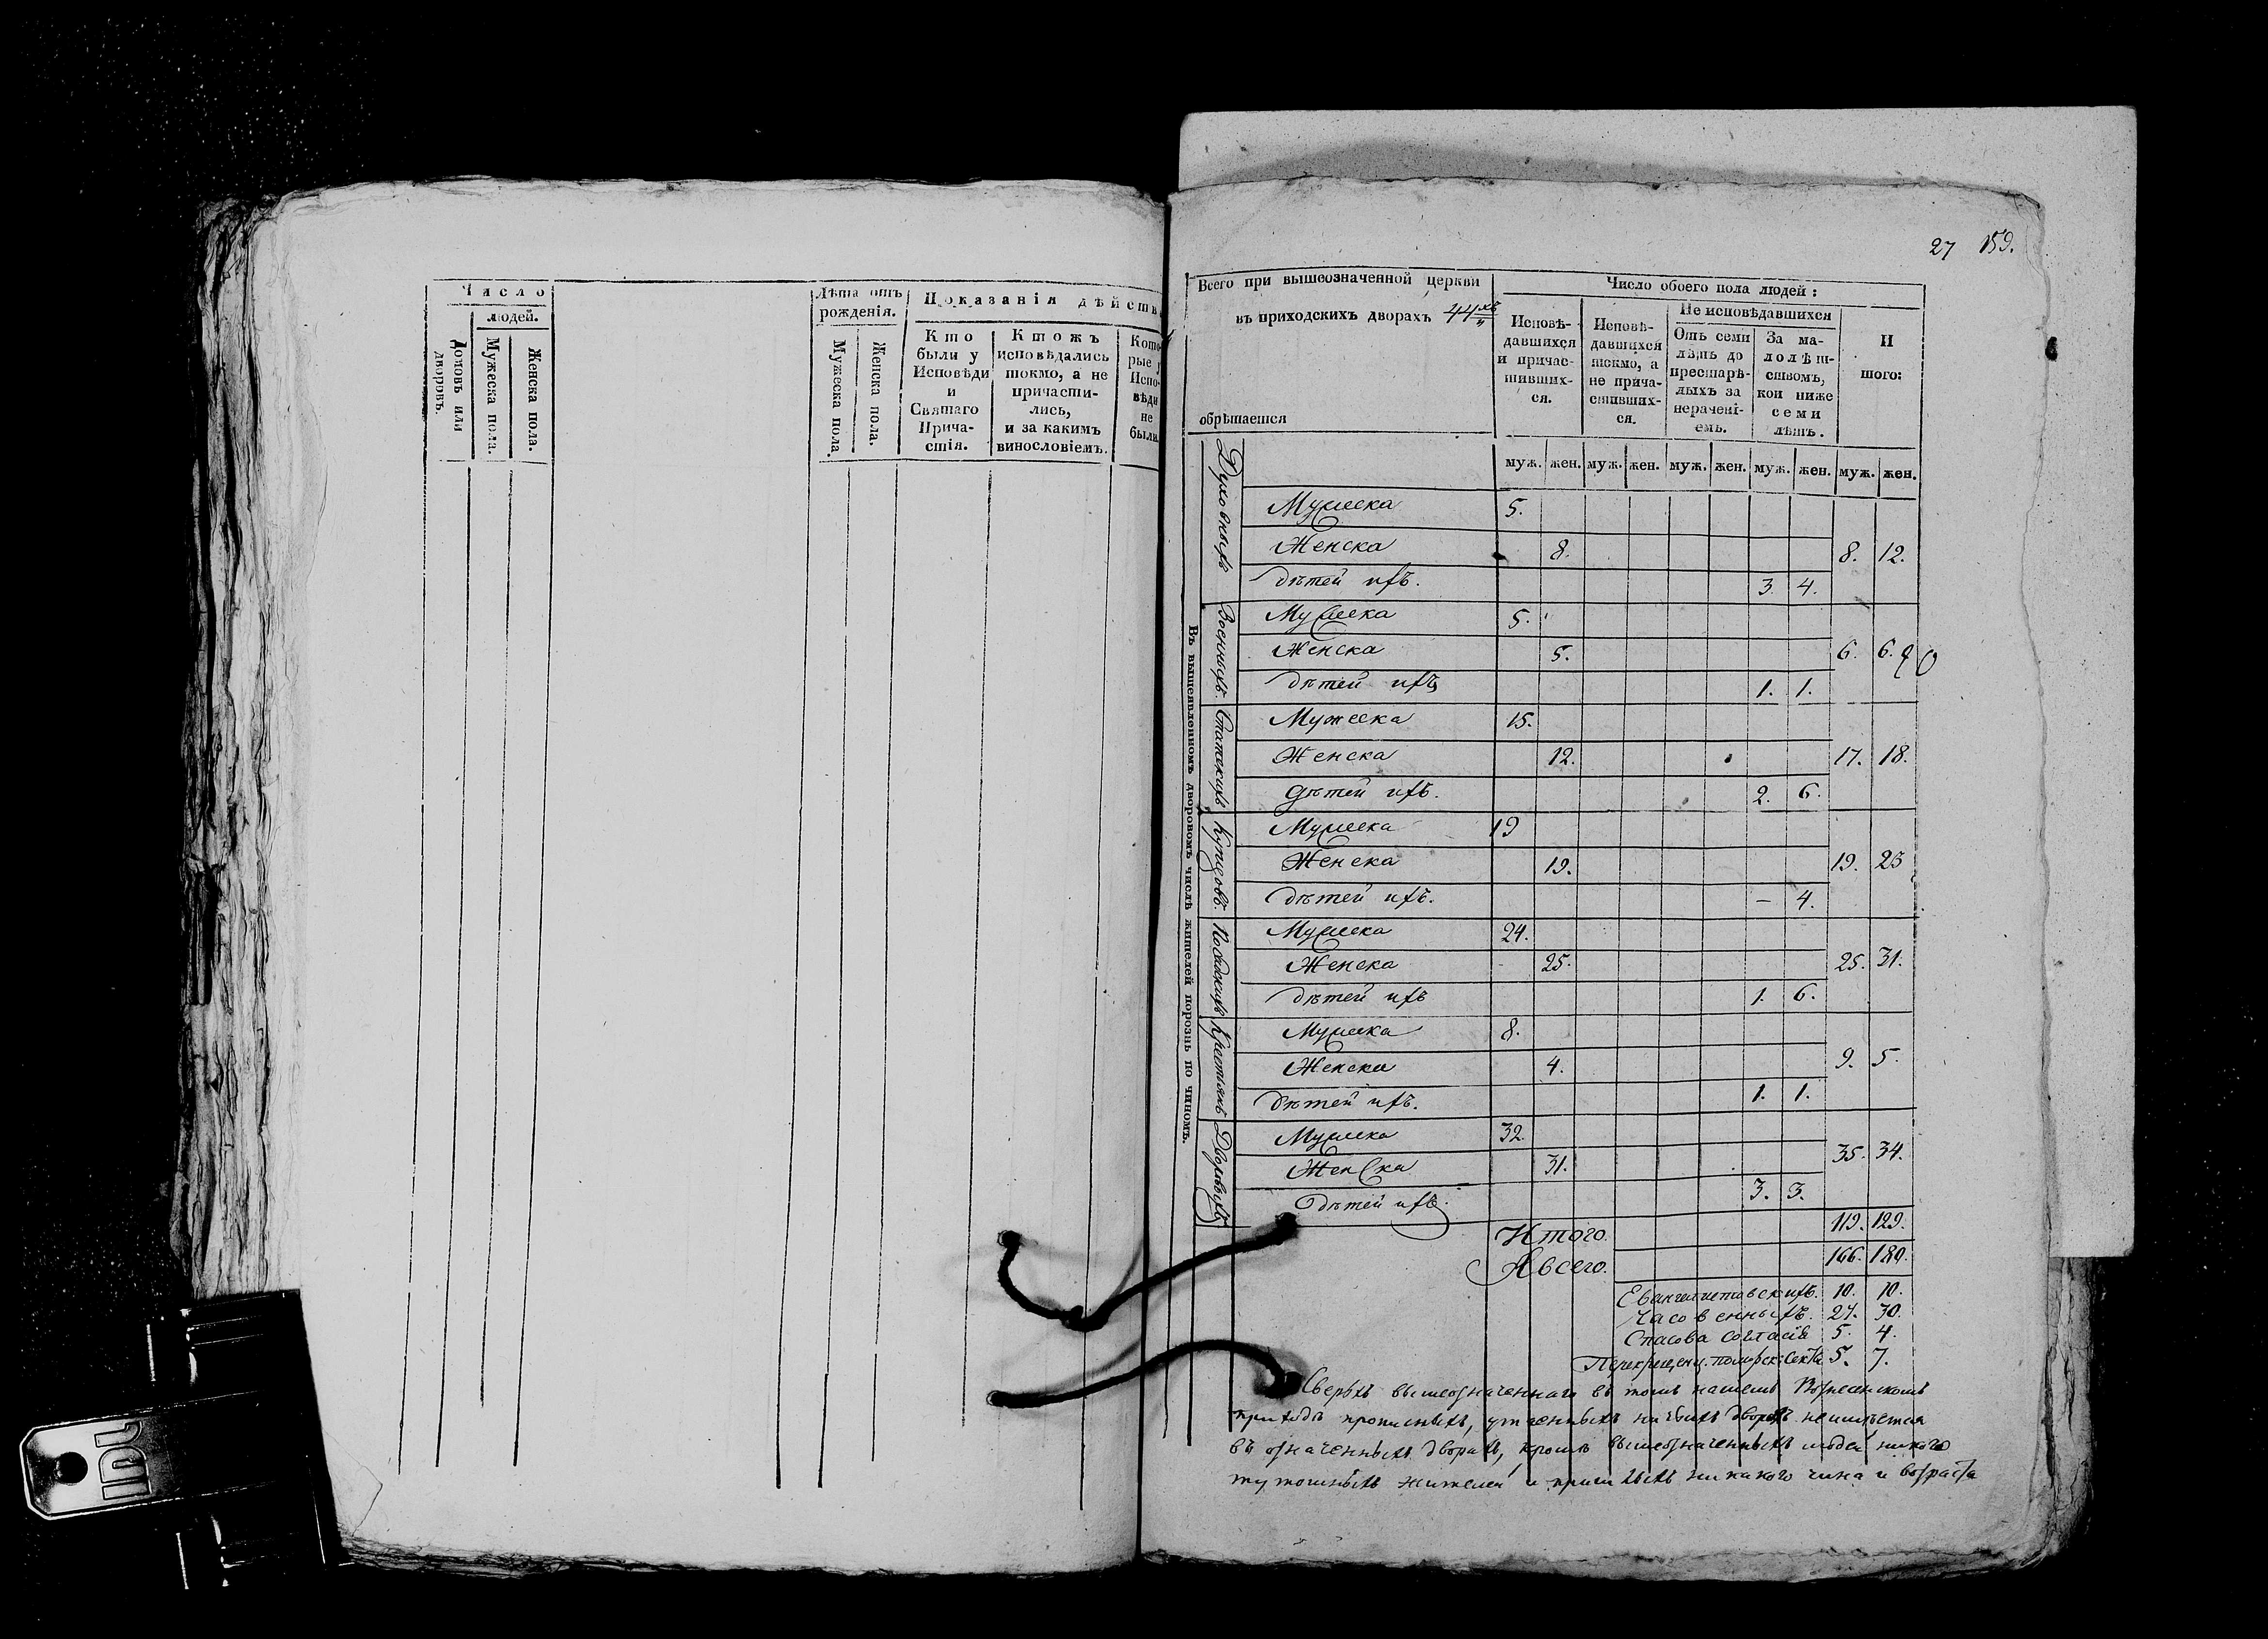 Число
людей.
Домовъ или дворовъ.
Мужеска пола.
Женска пола.
Лѣта отъ рожденія.
Мужеска пола.
Женска пола.
Показанія дѣйств
Кто
были у
Исповѣди
и
Святаго
Прича-
стія.
Ктожъ
исповѣдались
токмо, а не
причасти-
лись,
и за какимъ
винословіемъ.
Кото-
рые у
Испо-
вѣди
не
были.
27 159.
Всего при вышеозначенной церкви
въ приходскихъ дворахъ 44хъ
обрѣтается
Число обоего пола людей:
Исповѣ-
давшихся
и причас-
тивших-
ся.
Исповѣ-
давшихся
токмо, а
не прича-
стивших-
ся.
Не исповѣдавшихся
Отъ семи
лѣтъ до
престарѣ-
лыхъ за
нераченi-
емъ.
За ма-
лолѣт-
ствомъ,
кои ниже
семи
лѣтъ.
И
шого:
муж. жен. муж. жен. муж. жен. муж. жен. муж. жен.
Въ вышеявленномъ дворовомъ числѣ жителей порознь по чиномъ.
Духовныхъ
Мужеска 5.
Женска 8. 8. 12.
дѣтей ихъ. 3. 4.
Военныхъ.
Мужеска 5.
Женска 5. 6. 6.
дѣтей ихъ 1. 1.
Статскихъ
Мужеска 15.
Женска 12. 17. 18.
дѣтей ихъ. 2. 6.
Купцовъ.
Мужеска 19
Женска 19. 19. 23
дѣтей ихъ. – 4.
Посадскихъ
Мужеска 24.
Женска 25. 25. 31.
дѣтей ихъ 1. 6.
Крестьянъ
Мужеска 8.
Женска 4. 9. 5.
дѣтей ихъ. 1. 1.
Дворовыхъ
Мужеска 32.
Женска 31. 35. 34.
дѣтей ихъ. 3. 3.
Итого. 119. 129.
А всего. 166. 180.
Евангелистовскихъ. 10. 10.
Часовенныхъ. 27. 30.
Спасова согласія 5. 4.
Перекрещен. поморск: секты 5. 7.
Сверхъ вышеозначеннаго въ томъ нашемъ Вознесенскомъ
приходѣ прописныхъ, утаенныхъ ничьихъ дворовъ неимѣется
въ означенныхъ дворахъ, кромѣ вышеозначенныхъ людей никого
тутошныхъ жителей и пришлыхъ никакого чина и возраста